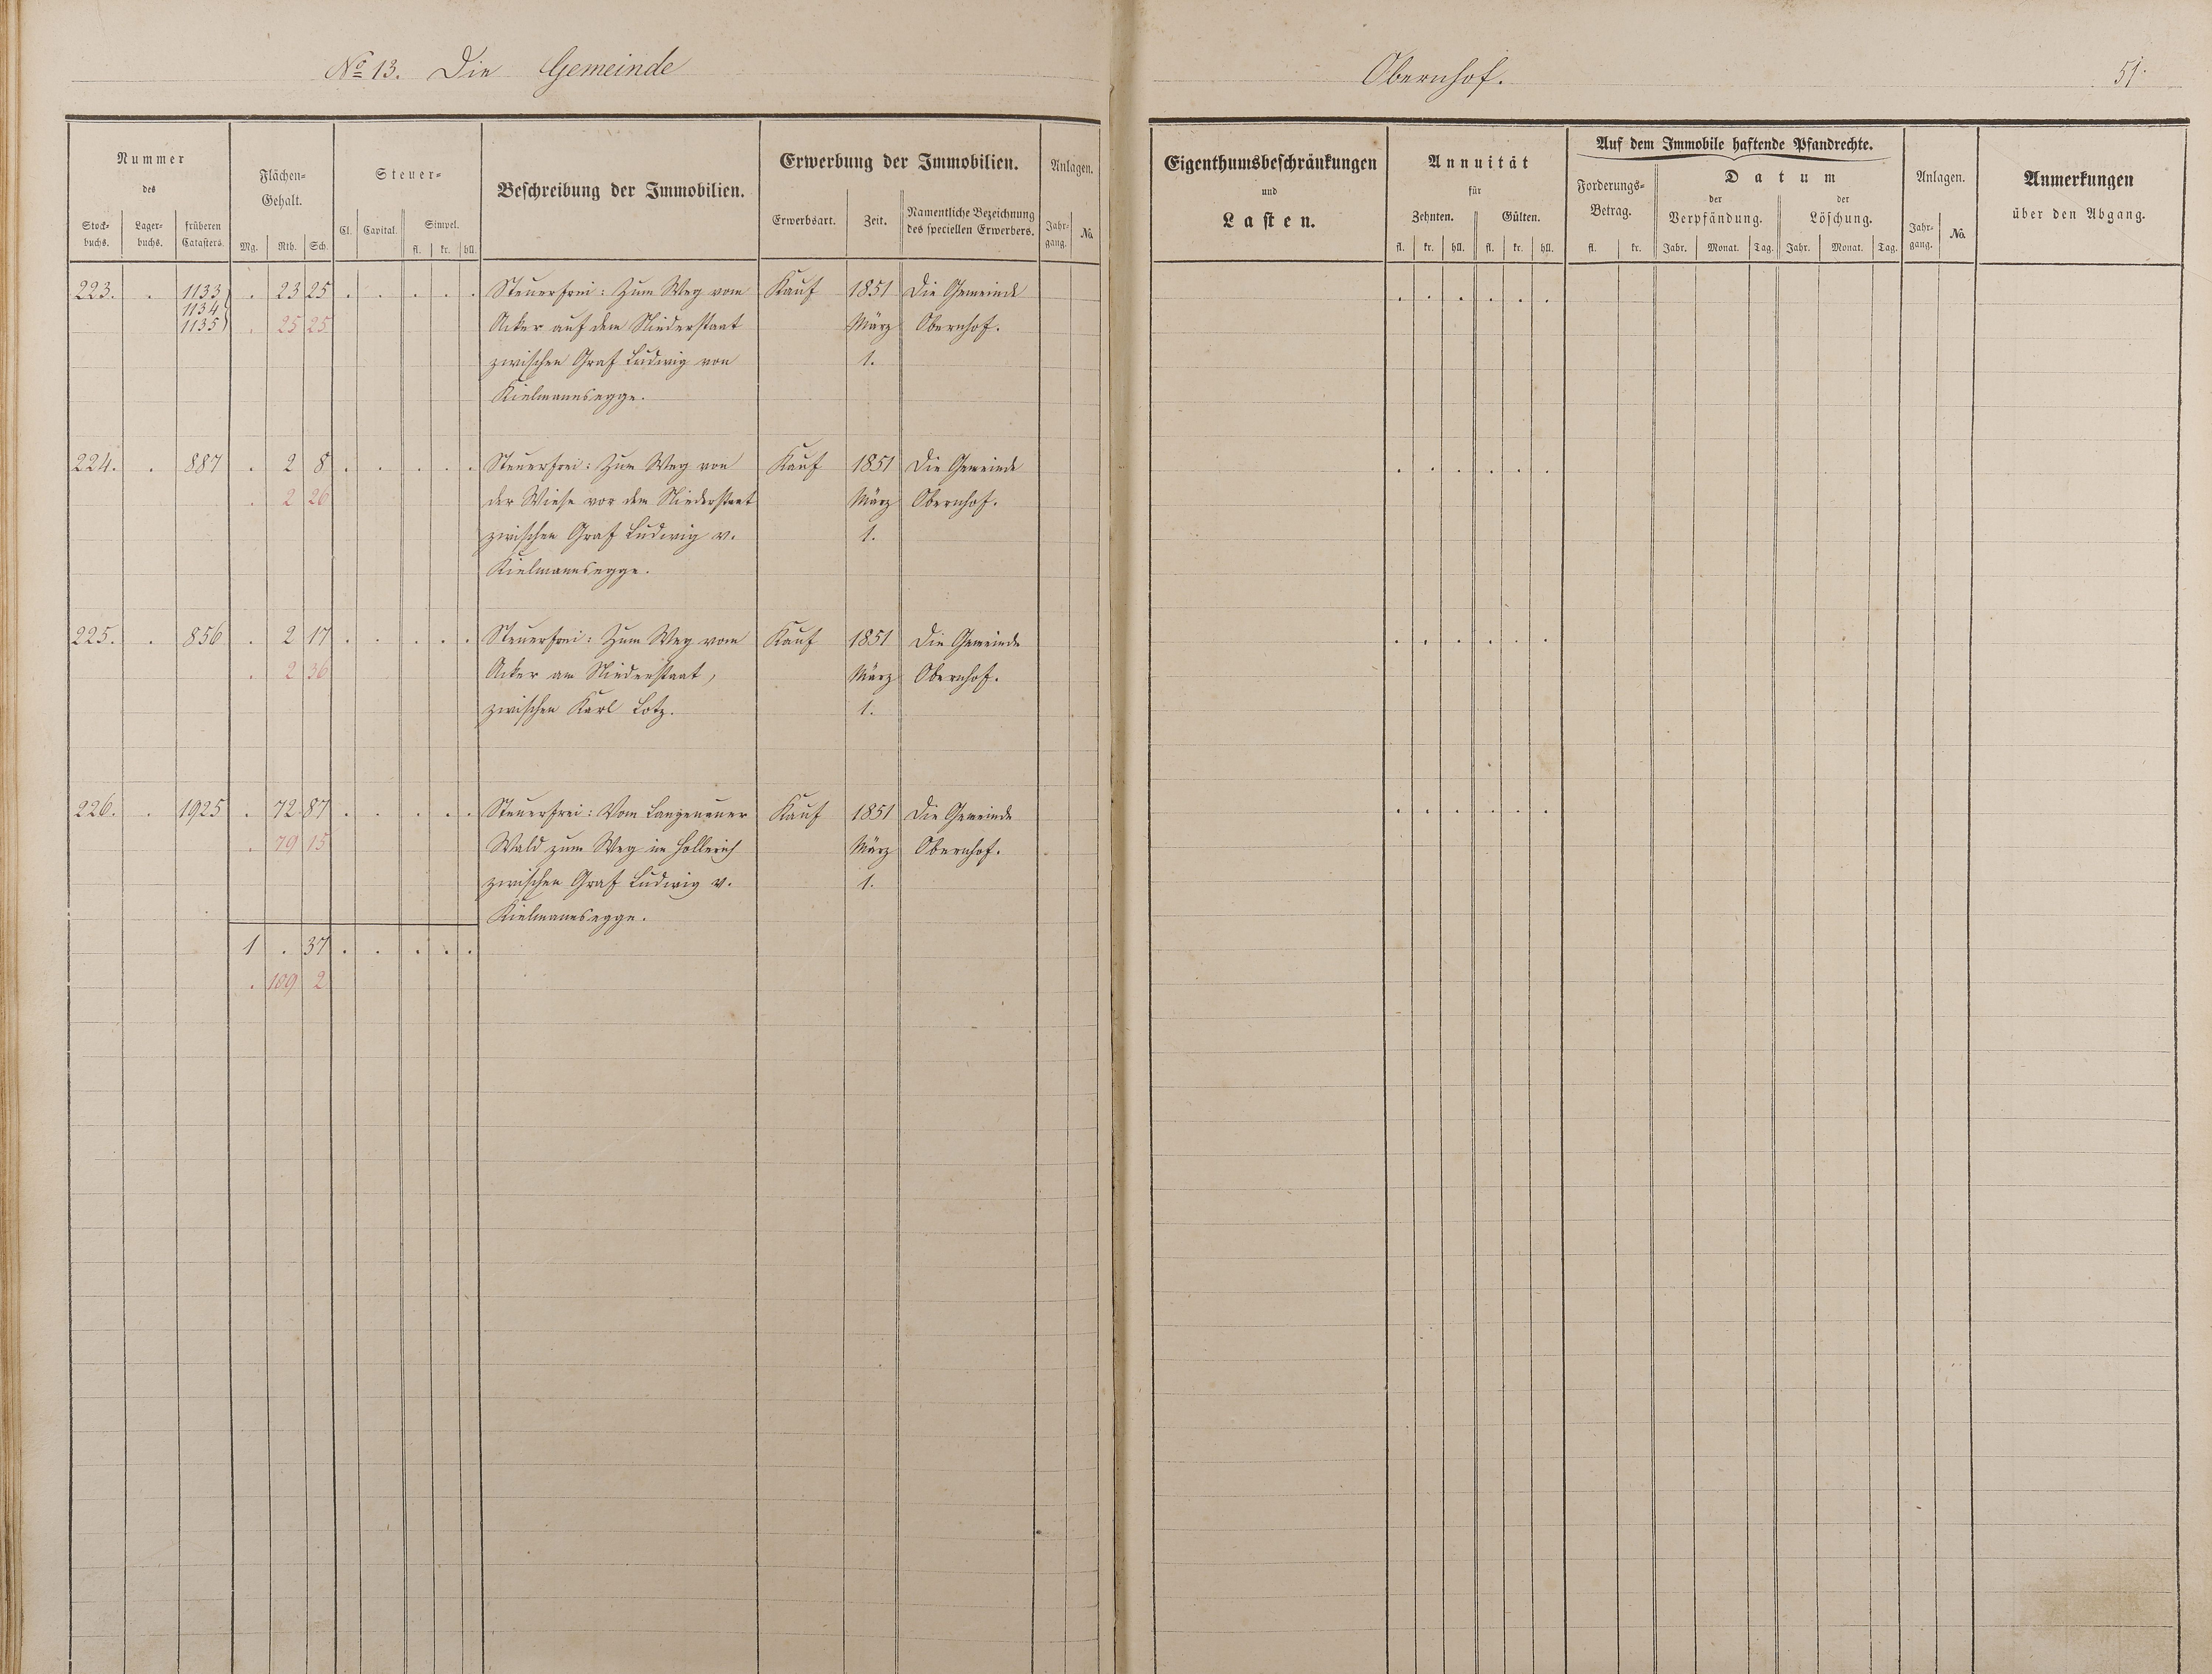 No 13. Die Gemeinde
Obernhof.
51.
Nummer
des
Stock-
buchs.
Lager-
buchs.
früheren
Catasters.
Flächen-
Gehalt.
Mg. Rth. Sch.
Steuer-
Cl. Capital. Simpel.
fl. kr. hll.
Beschreibung der Immobilien.
Erwerbung der Immobilien.
Erwerbsart. Zeit. Namentliche Bezeichnung
des speciellen Erwerbers.
Anlagen.
Jahr-
gang. No.
Eigenthumsbeschränkungen
und
Lasten.
Annuität
für
Zehnten. Gülten.
fl. kr. hll. fl. kr. hll.
Auf dem Immobile haftende Pfandrechte.
Forderungs-
Betrag.
fl. kr.
Datum
der
Verpfändung.
der
Löschung.
Jahr. Monat. Tag. Jahr. Monat. Tag.
Anlagen.
Jahr-
gang. No.
Anmerkungen
über den Abgang.
223. . 1133 . 23 25 . . . . . Steuerfrei: Zum Weg vom Kauf 1851 Die Gemeinde . . . . . .
1134
1135 . 25 25 Acker auf dem Niederstaat März Obernhof.
zwischen Graf Ludwig von 1.
Kielmannsegge.
224. . 887 . 2 8 . . . . . Steuerfrei: Zum Weg von Kauf 1851 Die Gemeinde . . . . . .
. 2 26 der Wiese vor dem Niederstaat März Obernhof.
zwischen Graf Ludwig v. 1.
Kielmannsegge.
225. . 856 . 2 17 . . . . . Steuerfrei: Zum Weg vom Kauf 1851 Die Gemeinde . . . . . .
. 2 36 Acker am Niederstaat, März Obernhof.
zwischen Karl Lotz. 1.
226. . 1925 . 72 87 . . . . . Steuerfrei: Vom Langenauer Kauf 1851 Die Gemeinde . . . . . .
. 79 15 Wald zum Weg im Hollerich März Obernhof.
zwischen Graf Ludwig v. 1.
Kielmannsegge.
1 . 37 . . . . .
. 109 2